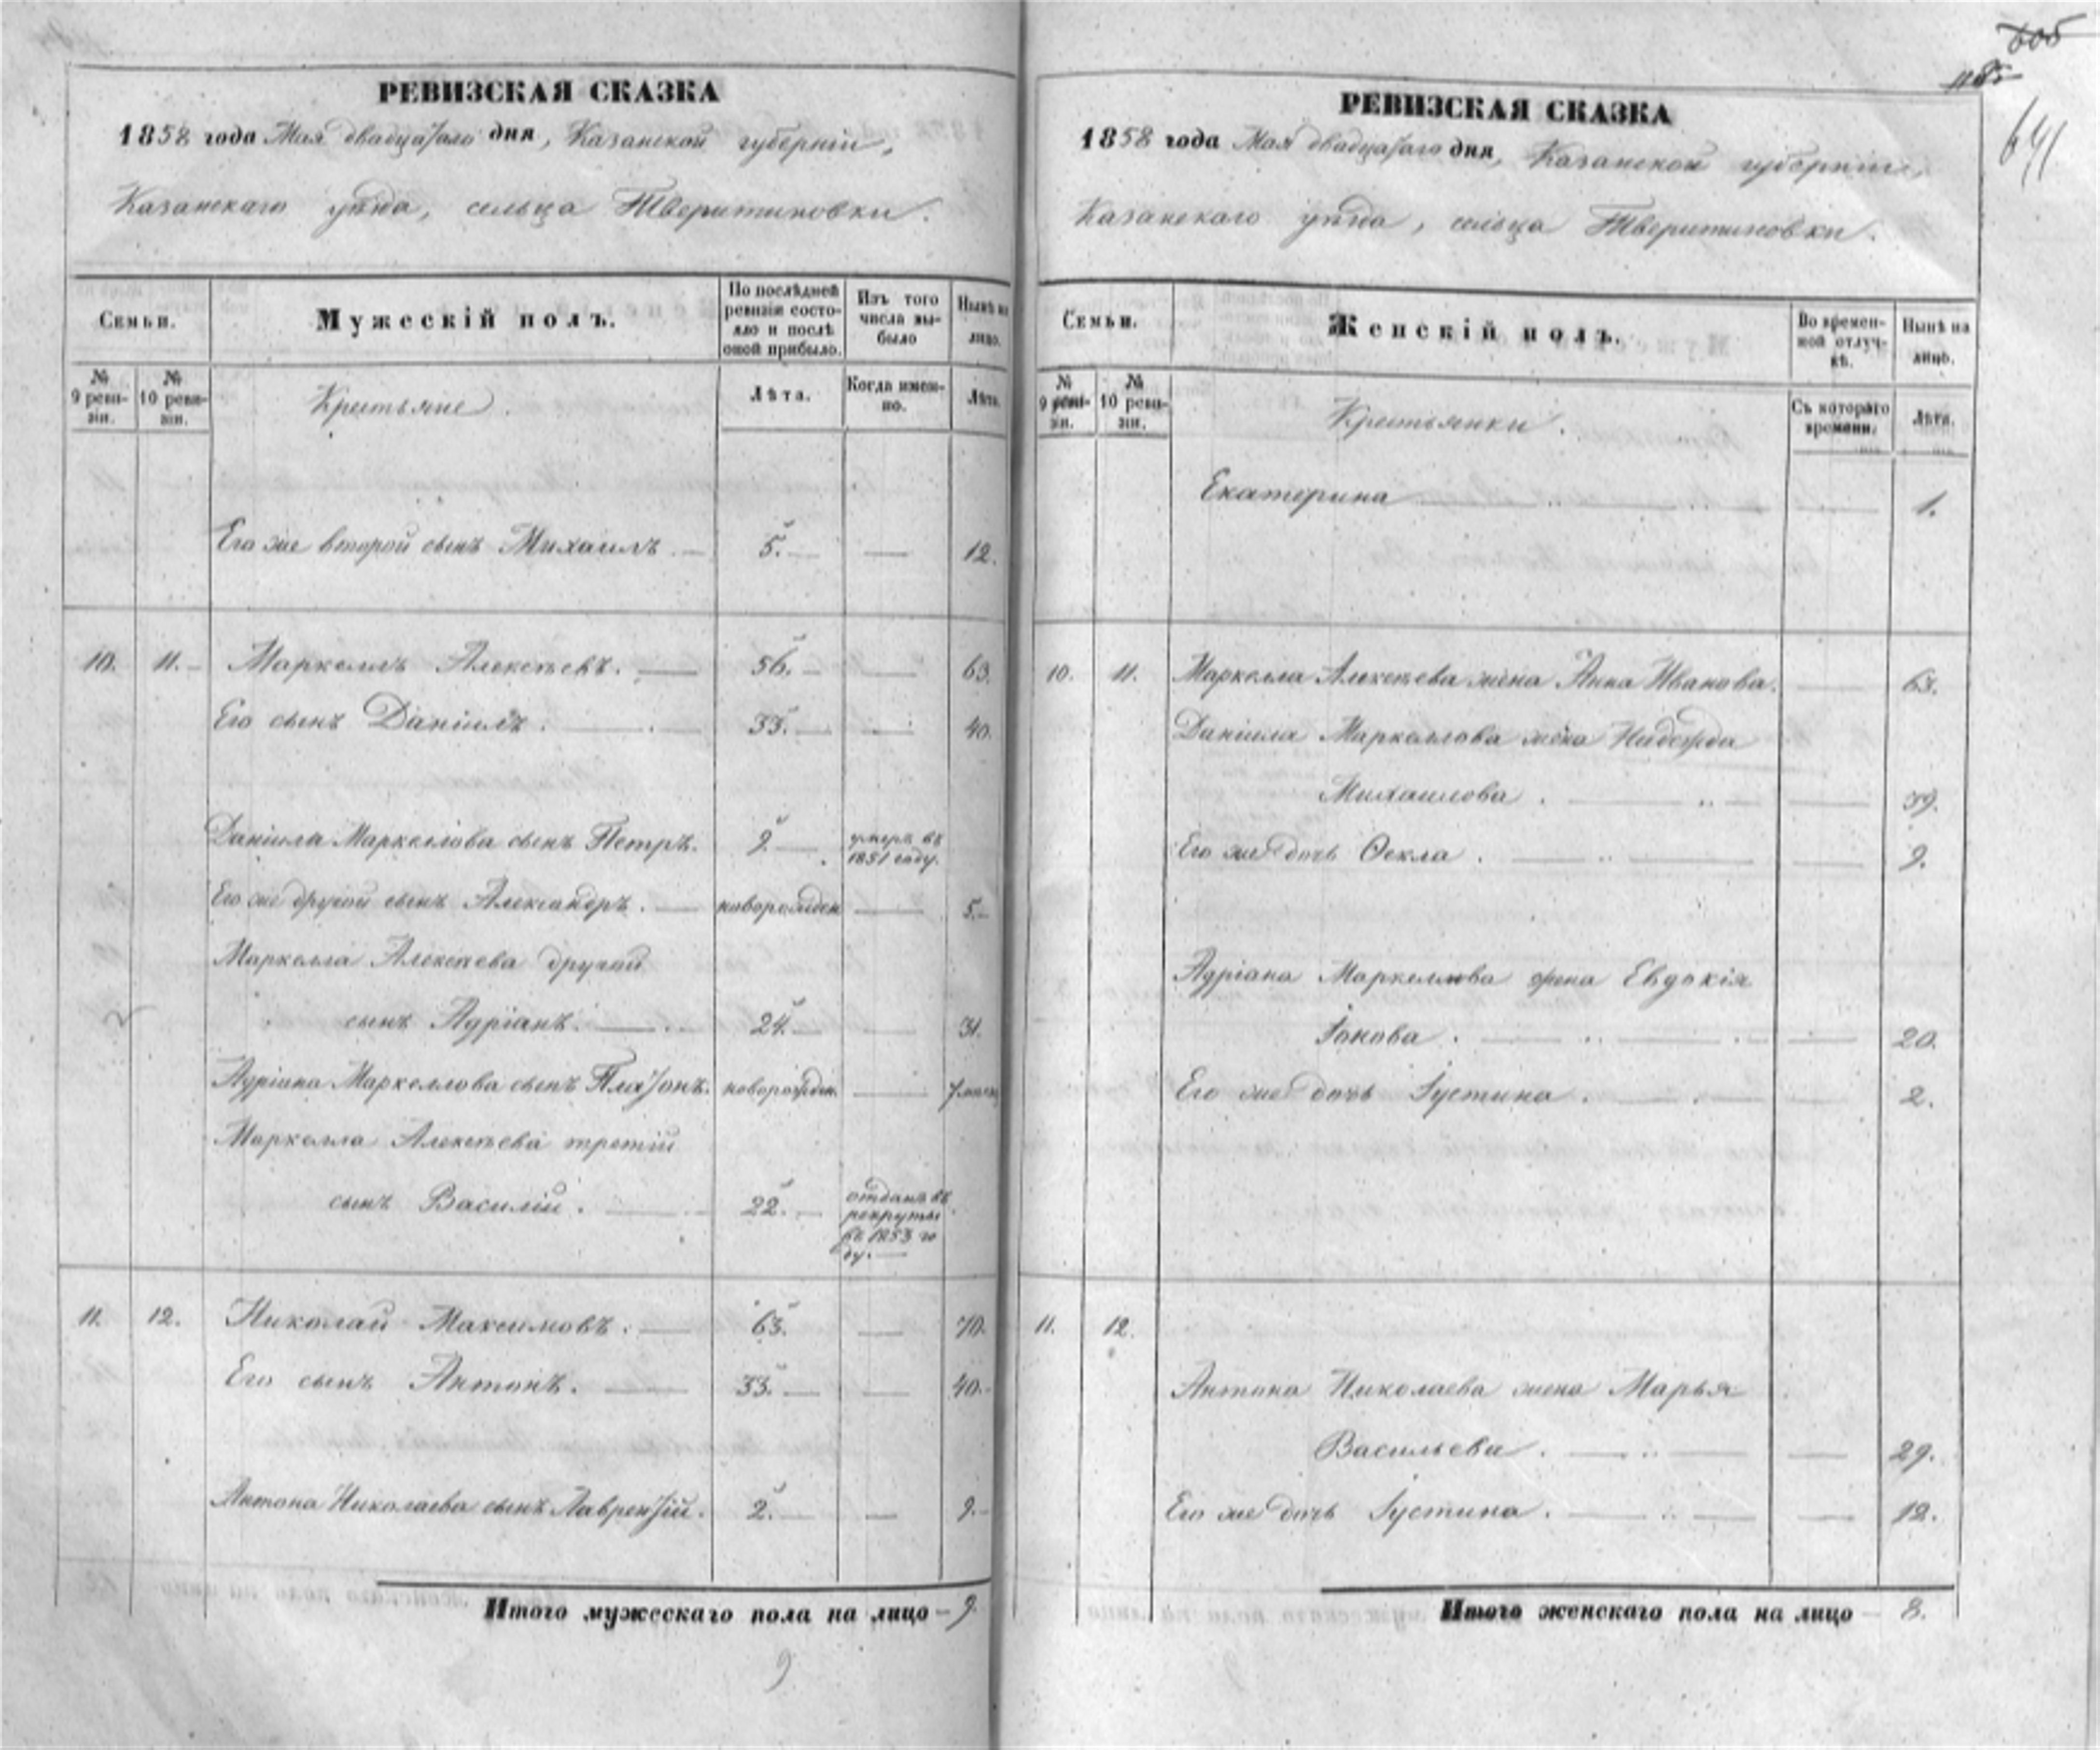 РЕВИЗСКАЯ СКАЗКА
1858 года Мая двадцатаго дня, Казанской губерніи,
Казанскаго уѣзда, сельца Тверитиновки.
Семьи.
Мужескій полъ.
По послѣдней ревизіи состояло и послѣ оной прибыло.
Изъ того числа выбыло
Нынѣ на лицо.
№ 9 ревизіи.
№ 10 ревизіи.
Крестьяне.
Лѣта.
Когда именно.
Лѣта.
Его же второй сынъ Михаилъ 5. 12.
10. 11. Маркеллъ Алексѣевъ. 56. 63.
Его сынъ Даніилъ. 33. 40.
Даніила Маркеллова сынъ Петръ. 2 умеръ въ
1851 году.
Его же другой сынъ Александръ. новорожден 5.
Маркелла Алексѣева другой
сынъ Адріанъ. 24. 31.
Адріана Маркеллова сынъ Платонъ. новорожден.
Маркелла Алексѣева третій
сынъ Василій. 22. отданъ въ
рекруты
въ 1853 го
ду.
11. 12. Николай Максимовъ. 63. 70.
Его сынъ Антонъ. 33. 40.
Антона Николаева сынъ Лаврентій. 2. 9.
Итого мужескаго пола на лицо 9.
9
605
641
РЕВИЗСКАЯ СКАЗКА
1858 года Мая двадцатаго дня, Казанской губерніи,
Казанскаго уѣзда, сельца Тверитиновки.
Семьи.
Женскій полъ.
Во временной отлучкѣ.
Нынѣ на лицо.
№ 9 ревизіи.
№ 10 ревизіи.
Крестьянки.
Съ котораго времени.
Лѣта.
Екатерина 1.
10. 11. Маркелла Алексѣева жена Анна Иванова. 63.
Даніила Маркеллова жена Надежда
Михаилова. 39.
Его же дочь Ѳекла. 9.
Адріана Маркеллова жена Евдокія
Іакова. 20.
Его же дочь Іустина. 2.
11. 12.
Антона Николаева жена Марья
Васильева. 29.
Его же дочь Іустина. 12.
Итого женскаго пола на лицо 8.